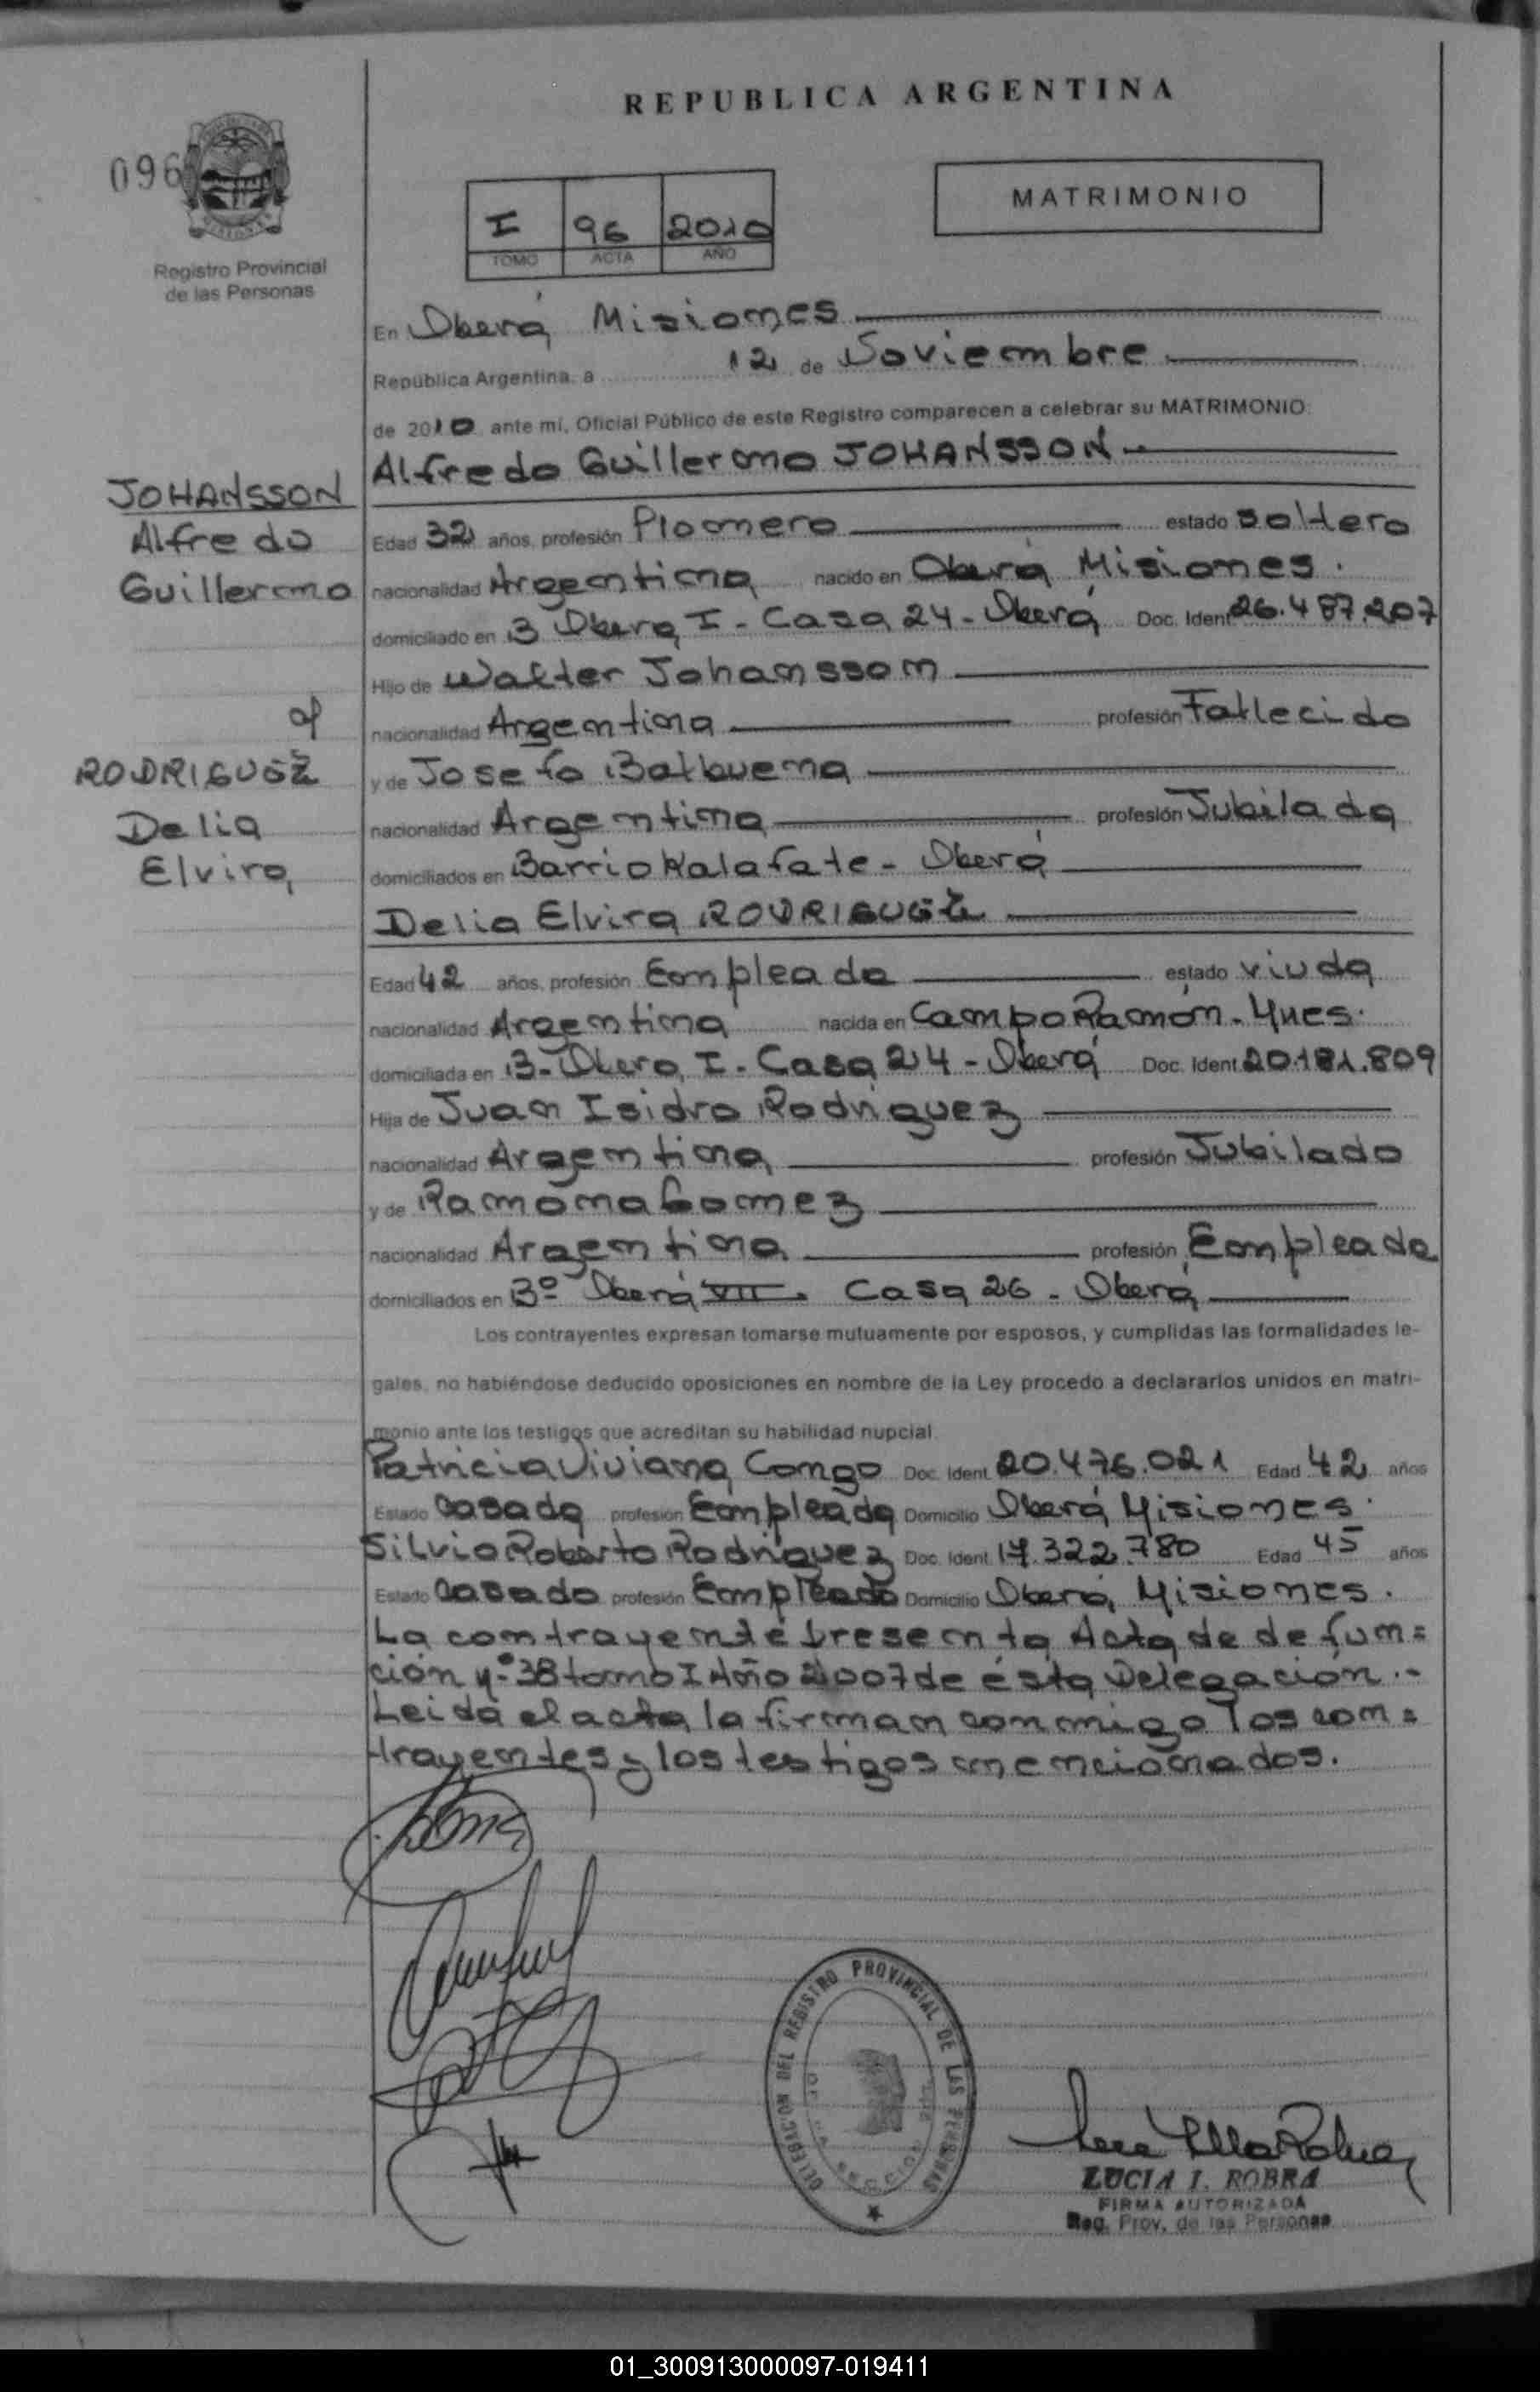 REPUBLICA ARGENTINA
096
MATRIMONIO
I 96 2010
TOMO ACTA AÑO
Registro Provincial
de las Personas
En Oberá Misiones
República Argentina, a 12 de Noviembre
de 2010 ante mi, Oficial Público de este Registro comparecen a celebrar su MATRIMONIO:
Alfredo Guillermo JOHANSSON
JOHANSSON
Alfredo
Guillermo
Edad 32 años, profesión Plomero estado soltero
nacionalidad Argentina nacido en Oberá Misiones.
domiciliado en B Oberá I - Casa 24 - Oberá Doc. Ident 26.487.207
Hijo de Walter Johansson
nacionalidad Argentina profesión Fallecido
y de Josefa Balbuena
nacionalidad Argentina profesión Jubilada
domiciliados en Barrio Kalafate - Oberá
RODRIGUEZ
Delia
Elvira
Delia Elvira RODRIGUEZ
Edad 42 años, profesión Empleada estado viuda
nacionalidad Argentina nacida en Campo Ramón - Mnes.
domiciliada en B - Oberá I - Casa 24 - Oberá Doc. Ident. 20.181.809
Hija de Juan Isidro Rodriguez
nacionalidad Argentina profesión Jubilado
y de Ramona Gomez
nacionalidad Argentina profesión Empleada
domiciliados en Bº Oberá VII. Casa 26 - Oberá
Los contrayentes expresan tomarse mutuamente por esposos, y cumplidas las formalidades le-
gales, no habiéndose deducido oposiciones en nombre de la Ley procedo a declararlos unidos en matri-
monio ante los testigos que acreditan su habilidad nupcial.
Patricia Viviana Congo Doc. Ident. 20.476.021 Edad 42 años
Estado casada profesión Empleada Domicilio Oberá Misiones.
Silvio Roberto Rodriguez Doc. Ident. 17.322.780 Edad 45 años
Estado casado profesión Empleado Domicilio Oberá Misiones.
La contrayente presenta Acta de defun=
ción Nº 38 tomo I Año 2007 de ésta Delegación.-
Leida el acta la firman conmigo los con=
trayentes y los testigos mencionados.
DELEGACION DEL REGISTRO PROVINCIAL DE LAS PERSONAS
LUCIA I. ROBRA
FIRMA AUTORIZADA
Reg. Prov. de las Personas
01_300913000097-019411